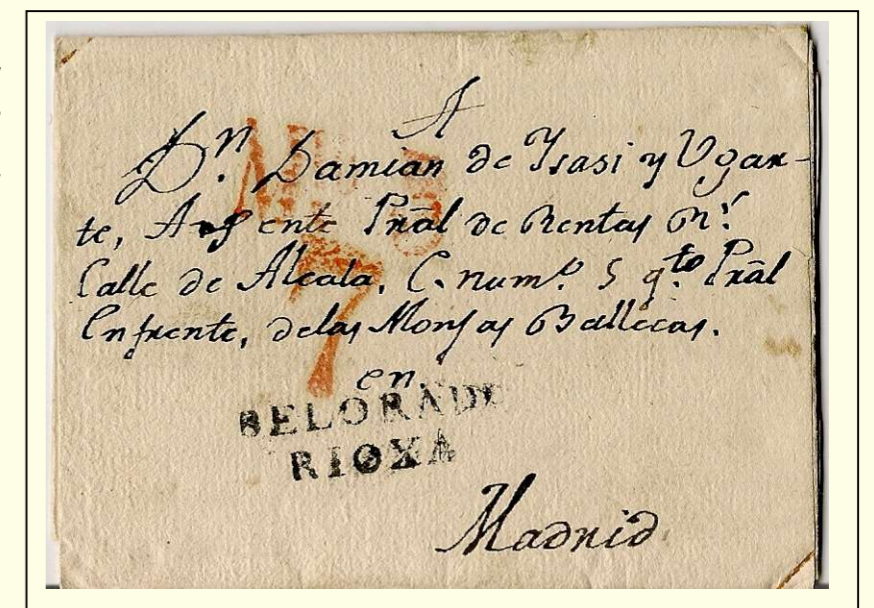 A
Dn. Damian de Ysasi y Ugar-
te, Agente Prãl de Rentas Rs.
Calle de Alcala, C. numº. 5 qto. Prãl
Enfrente, delas Monjas Ballecas.
en.
7
BELORADO
RIOXA
Madrid